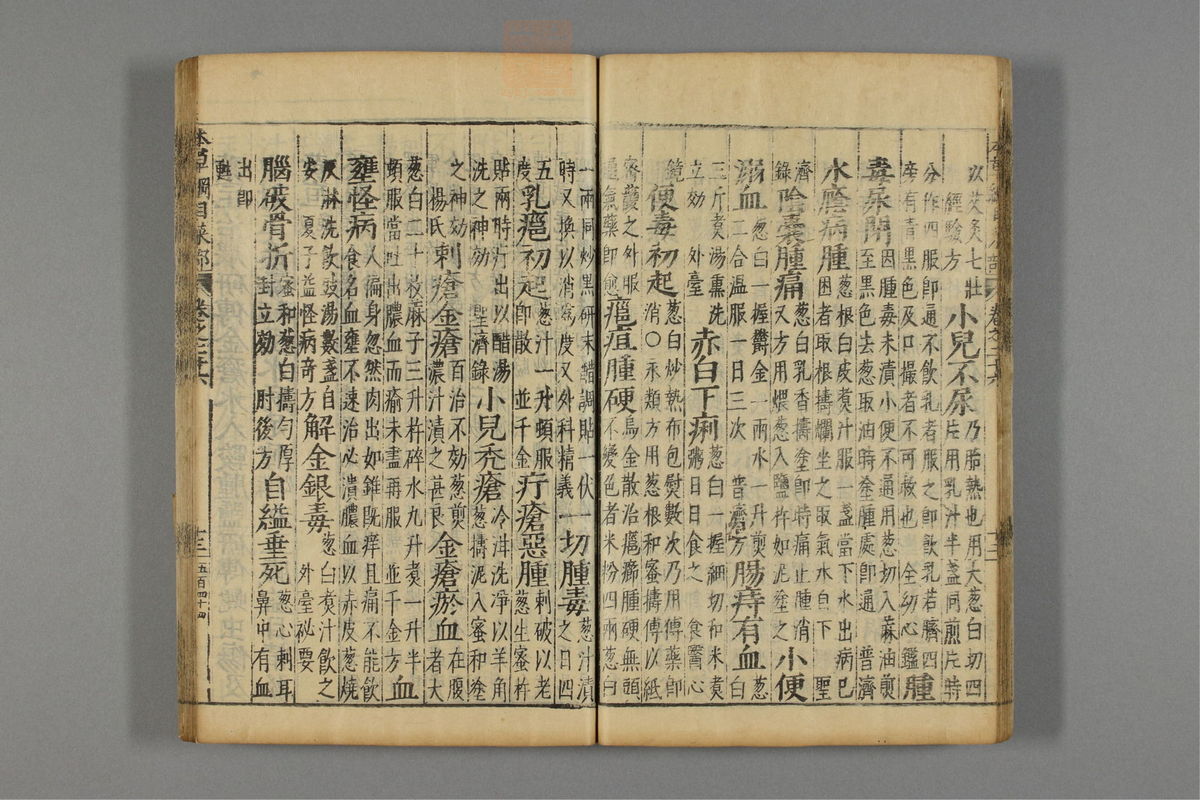 以艾灸七壯
經驗方
小兒不尿
乃胎熱也用大葱白切四
片用乳汁半盞同煎片時
分作四服即通不飲乳者服之即飲乳若臍四
旁有青黑色及口撮者不可救也 全幼心鑑
腫
毒尿閉
因腫毒未潰小便不通用葱切入麻油煎
至黑色去葱取油時塗腫處即通 普濟
水癊病腫
葱根白皮煑汁服一盞當下水出病已
困者取根擣爛坐之取氣水自下 聖
濟
錄
陰囊腫痛
葱白乳香擣塗即時痛止腫消
又方用煨葱入鹽杵如泥塗之
小便
溺血
葱白一握鬱金一兩水一升煎
二合温服一日三次 普濟方
腸痔有血
葱
白
三斤煑湯熏洗
立効 外臺
赤白下痢
葱白一握細切和米煑
粥日日食之 食醫心
鏡
便毒初起
葱白炒熱布包熨數次乃用傅藥即
消○永類方用葱根和蜜擣傅以紙
密護之外服
通氣藥即愈
癰疽腫硬
烏金散治癰癤腫硬無頭
不變色者米粉四兩葱白
一兩同炒黑研末醋調貼一伏
時又換以消爲度又外科精義
一切腫毒
葱汁漬
之日四
五
度
乳癰初起
葱汁一升頓服
即散 並千金
疔瘡惡腫
刺破以老
葱生蜜杵
貼兩時疔出以醋湯
洗之神効 聖濟錄
小兒禿瘡
冷泔洗淨以羊角
葱擣泥入蜜和塗
之神効
楊氏
刺瘡金瘡
百治不効葱煎
濃汁漬之甚良
金瘡瘀血
在腹
者大
葱白二十枚麻子三升杵碎水九升煑一升半
頓服當吐出膿血而瘉未盡再服 並千金方
血
壅怪病
人徧身忽然肉出如錐既痒且痛不能飲
食名血壅不速治必潰膿血以赤皮葱燒
灰淋洗飲豉湯數盞自
安 夏子益怪病奇方
解金銀毒
葱白煑汁飲之
外臺祕要
腦破骨折
蜜和葱白擣勻厚
封立効 肘後方
自縊垂死
葱心刺耳
鼻中有血
出即
甦
本草綱目菜部 卷之二十六 十三 五百四十四